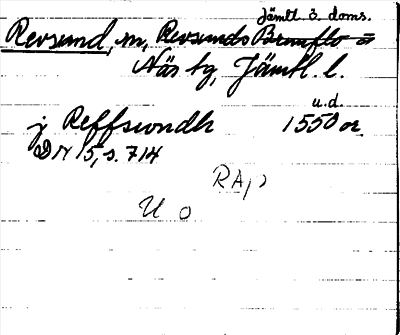 Jämtl. ö. doms.
Revsund, m, Revsunds Brunflo o
Näs tg, Jämtl. l.
u.d.
j Reffswndh 1550 or.
DN 15, s. 714
RAp
U o